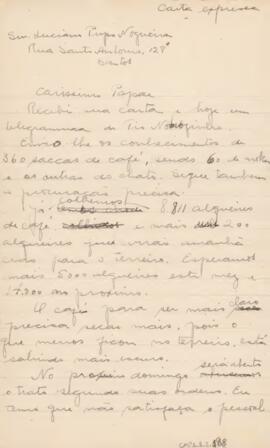 Carta expressa
Snr. Luciano Pupo Nogueira
Rua Santo Antonio, 128
Santos
Carissimo Papae
Recebi sua carta e hoje um
telegramma de Tio Nhozinho.
Envio-lhe os conhecimentos de
360 saccas de café, sendo 60 de
e as outras do chato. Segue tambem
a procuração precisa.
Já colhemos 8.811 alqueires
de café e mais 200
alqueires que virão amanhã
cedo para o terreiro. Esperamos
mais 5000 alqueires este mez e
no proximo.
O café para ser mais claro
precisa secar mais, pois o
que menos ficou no terreiro, está
sahindo mais escuro.
No domingo será aberto
o trato segundo suas ordens. Eu
temo que não satisfaça o pessoal